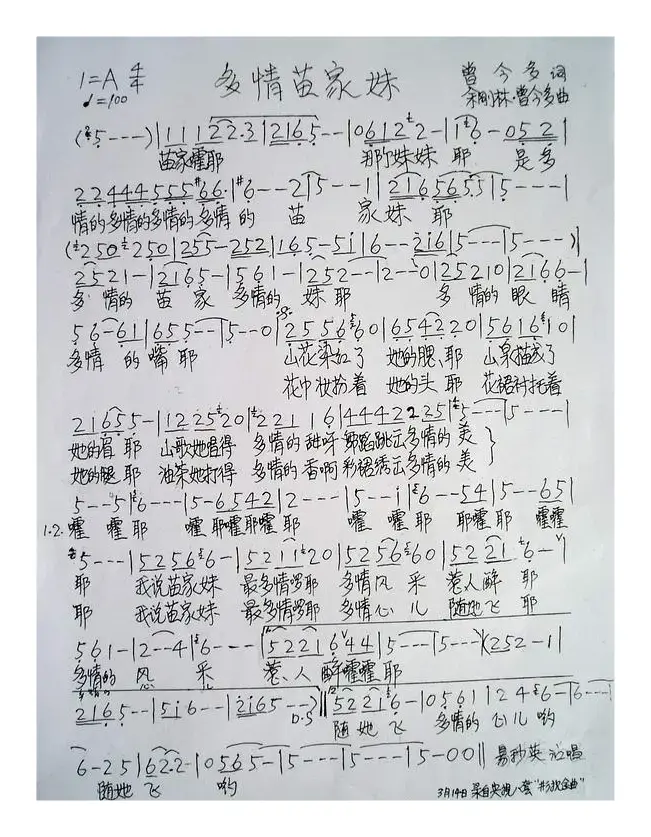 1=A 4/4 多情苗家妹 曾今多词
♩=100 余刚林·曾今多曲
(5---)|11122.3|2165--|06122-|1 6-052|
苗家嚯耶 那妹妹 耶 是多
2244455566.|6--2|5---1|21656555|5----|
情的多情的多情的多情的 苗 家妹 耶
(250250|255-252|165-51|6--216|5---|5----)|
2521-|2165-|561-|252--|2--0|25210|2166-|
多情的 苗家 多情的 妹耶 多情的 眼睛
56-61|655--|5--0|2556660|6542220|561610|
多情的嘴耶 山花染红了 她的腮、耶 山泉描成了
花巾妆扮着 她的头 耶 花裙衬托着
21655-|1222520|221 16|44422225|5---|5----|
她的眉 耶 山歌她唱得 多情的 甜呀 舞蹈跳出多情的 美
她的腿 耶 油茶她打得 多情的 香啊 彩裙绣出多情的 美
5--5|6---|5-6542|2---|5--i|6--54|5--65|
1.2. 嚯 嚯耶 嚯 耶嚯耶嚯耶 嚯 嚯耶 耶嚯耶 嚯嚯
5---|525666-|521120|5256660|5221 6-|
耶 我说苗家妹 最多情啰耶 多情风 采 惹人醉 耶
耶 我说苗家妹 最多情啰耶 多情心 儿 随她飞 耶
561-|2--4|6---|5221644|5---|5---)(252-1|
多情的 风 采 惹、人 醉嚯嚯耶
2165--|5i6--|2165--)D.S|5221 6-|0561|246-|6---|
随她飞 多情的 心儿哟
6-25|622-|0565-|5---|5---|5-00‖ 易秒英 记唱
随她 飞 哟
3月14日录自央视